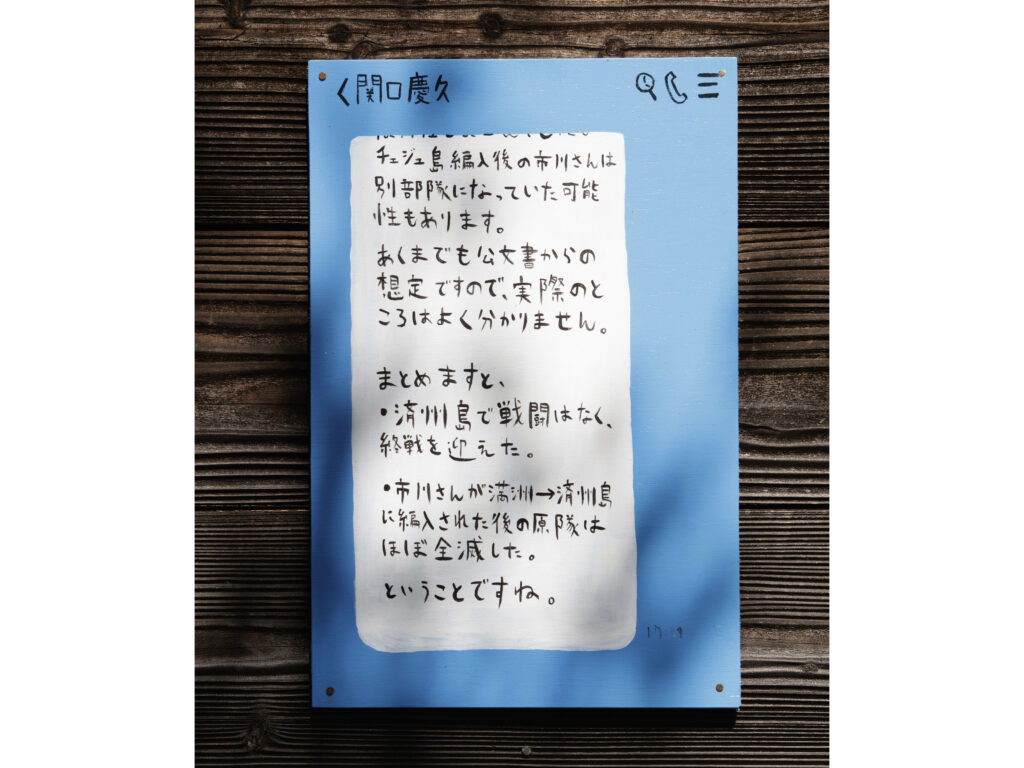 く関口慶久
チェジュ島編入後の市川さんは
別部隊になっていた可能
性もあります。
あくまでも公文書からの
想定ですので、実際のと
ころはよく分かりません。
まとめますと、
・済州島で戦闘はなく、
終戦を迎えた。
・市川さんが満洲→済州島
に編入された後の原隊は
ほぼ全滅した。
ということですね。